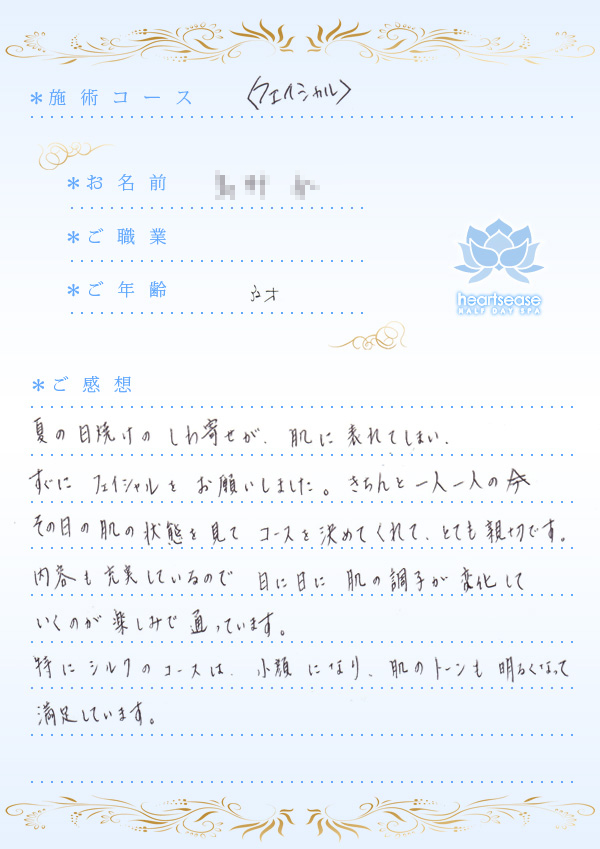 *施術コース 〈フェイシャル〉
*お名前
*ご職業
*ご年齢 才
heartsease
HALF DAY SPA
*ご感想
夏の日焼けの しわ寄せが、肌に表れてしまい、
すぐに フェイシャルを お願いしました。きちんと一人一人の
その日の肌の状態を見て コースを決めてくれて、とても親切です。
内容も充実しているので 日に日に 肌の調子が 変化して
いくのが楽しみで 通っています。
特にシルクのコースは、小顔になり、肌のトーンも明るくなって
満足しています。